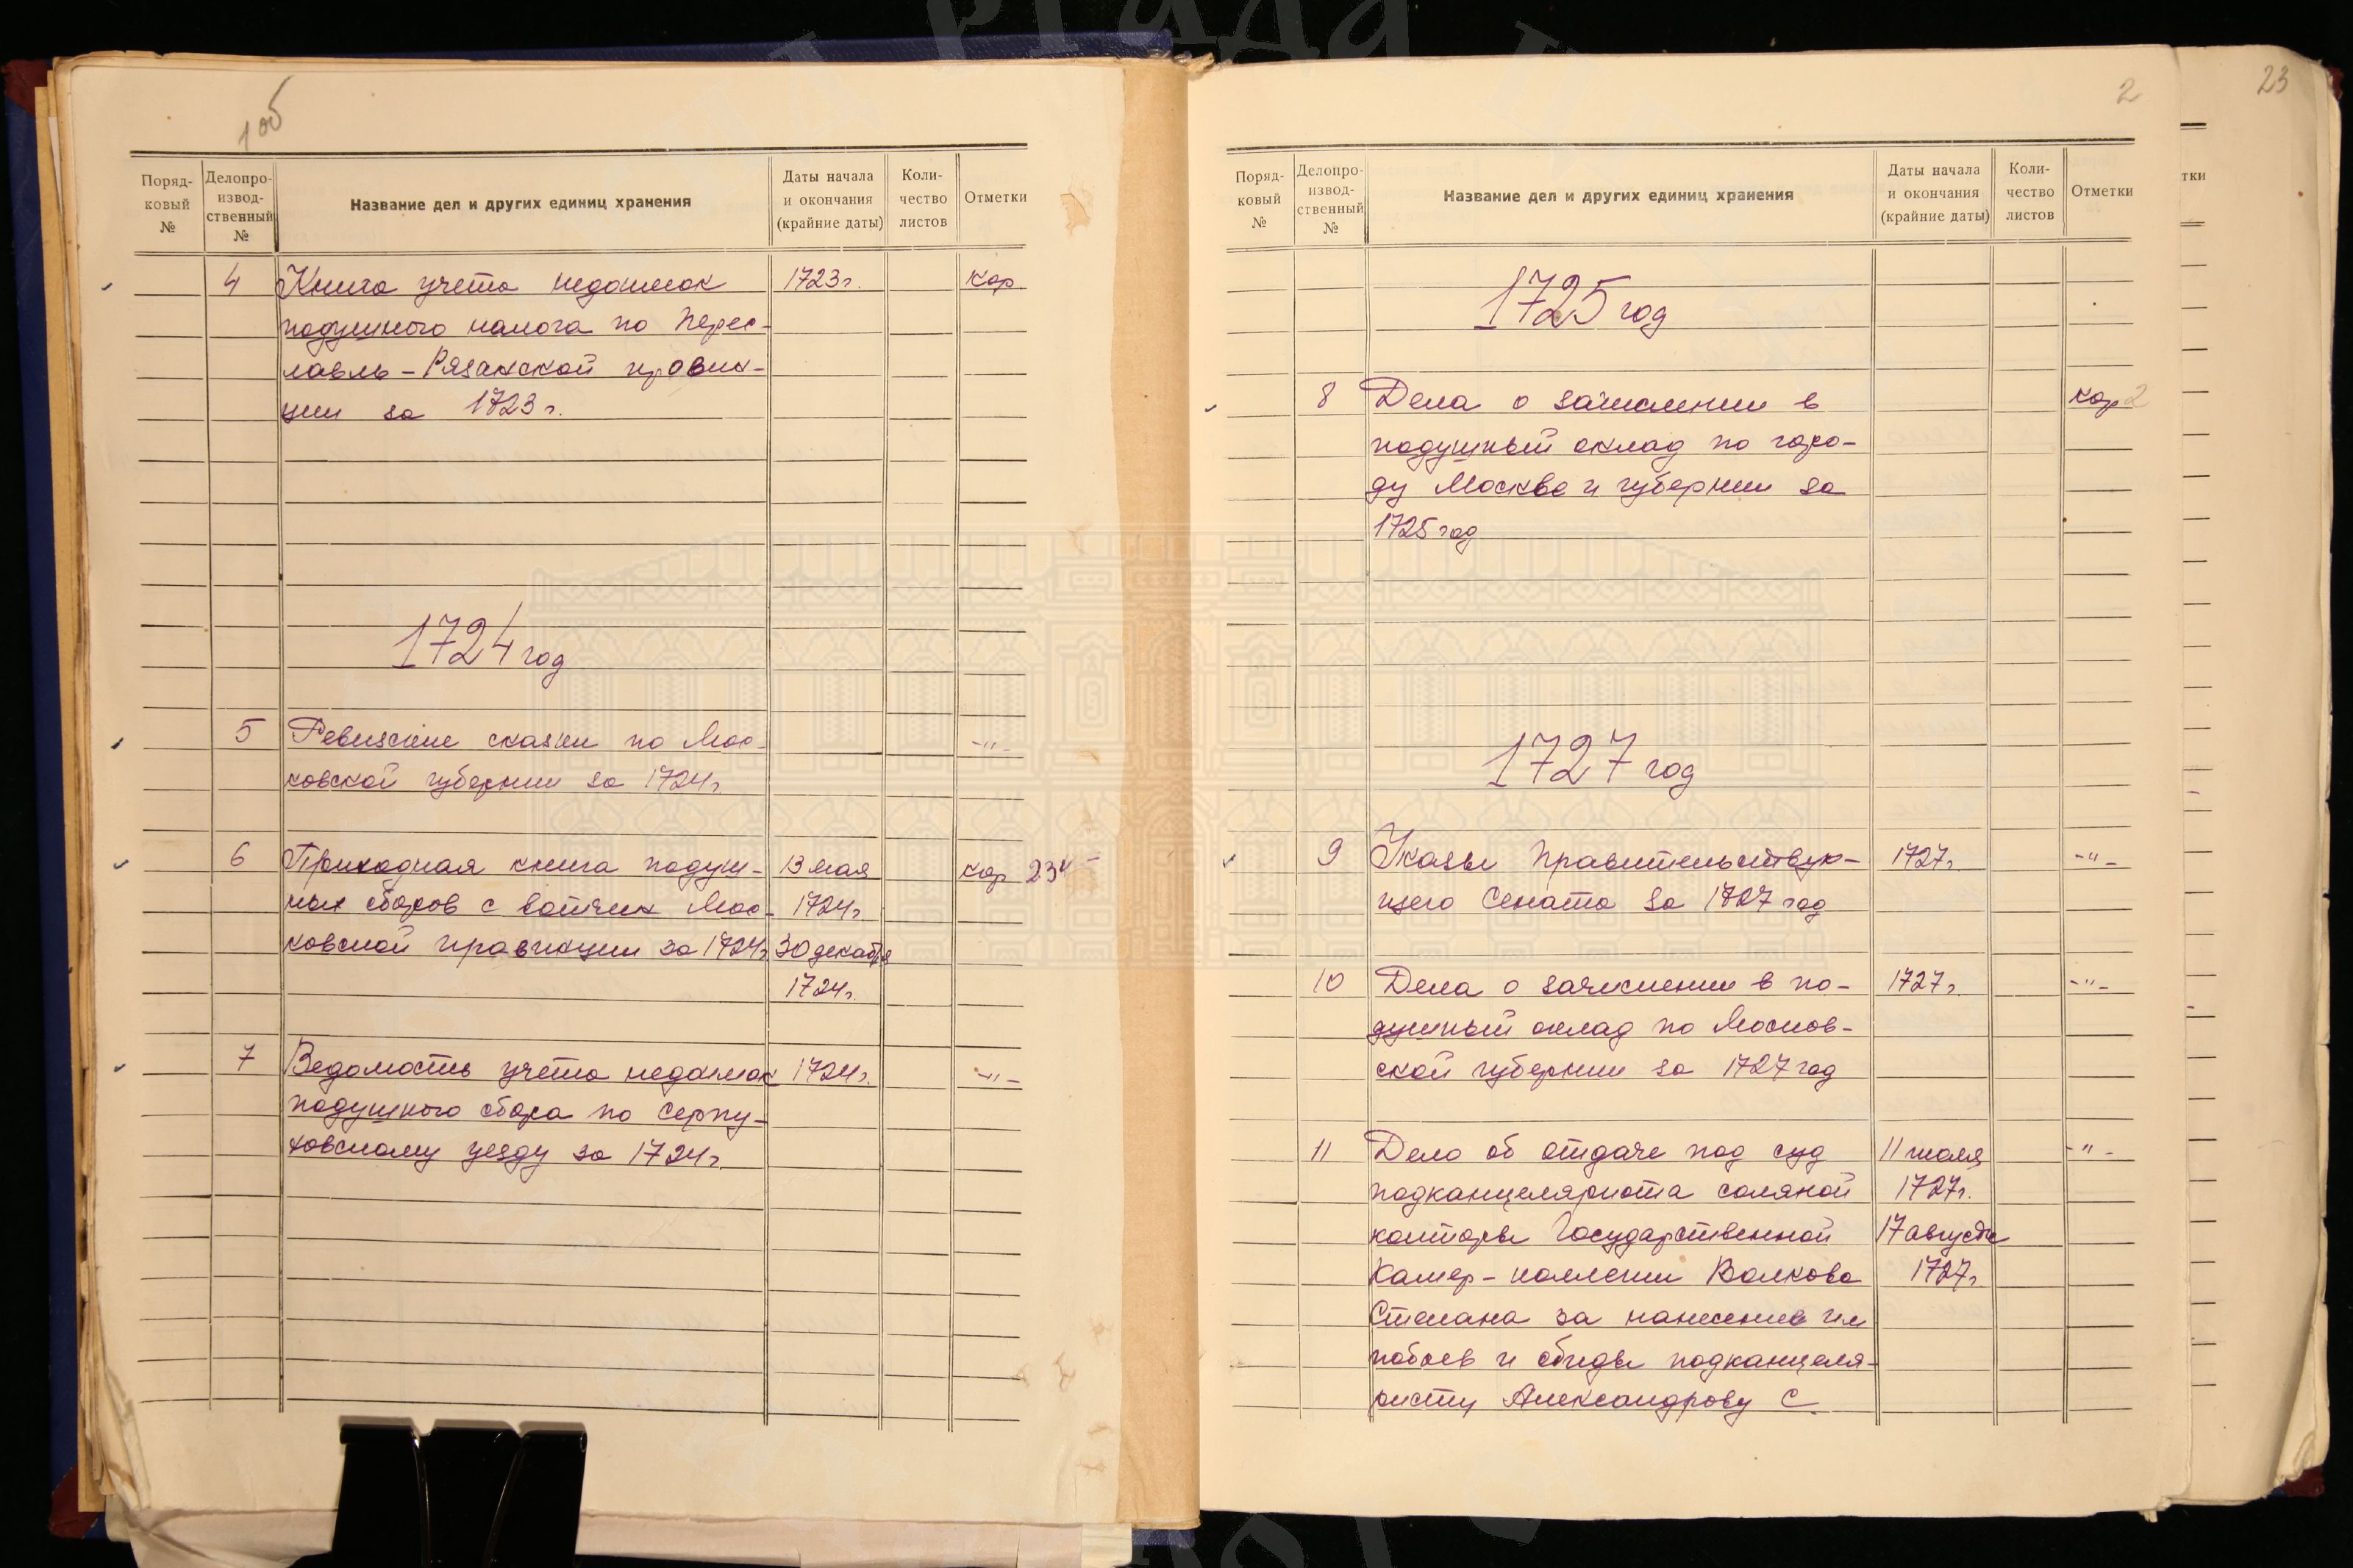 1об
Поряд-
ковый
№
Делопро-
извод-
ственный
№
Название дел и других единиц хранения
Даты начала
и окончания
(крайние даты)
Коли-
чество
листов
Отметки
4 Книга учета недоимок 1723г. кор
подушного налога по Перес-
лавль-Рязанской провин-
ции за 1723г.
1724 год
5 Ревизские сказки по Мос- -"-
ковской губернии за 1724г.
6 Приходная книга подуш- 13 мая кор 234
ных сборов с вотчин Мос- 1724г
ковской провинции за 1724г. 30 декабря
1724г.
7 Ведомость учета недоимок 1724г. -"-
подушного сбора по Серпу-
ховскому уезду за 1724г.
2
23
Поряд-
ковый
№
Делопро-
извод-
ственный
№
Название дел и других единиц хранения
Даты начала
и окончания
(крайние даты)
Коли-
чество
листов
Отметки
тки
1725 год
8 Дела о зачислении в кор 2
подушный оклад по горо-
ду Москве и губернии за
1725 год
1727 год
9 Указы Правительствую- 1727г. -"-
щего Сената за 1727 год
10 Дела о зачислении в по- 1727г. -"-
душный оклад по Москов-
ской губернии за 1727 год
11 Дело об отдаче под суд 11 июля -"-
подканцеляриста соляной 1727г.
конторы Государственной 17 августа
Камер-коллегии Волкова 1727г.
Степана за нанесение им
побоев и обиды подканцеля-
ристу Александрову С.